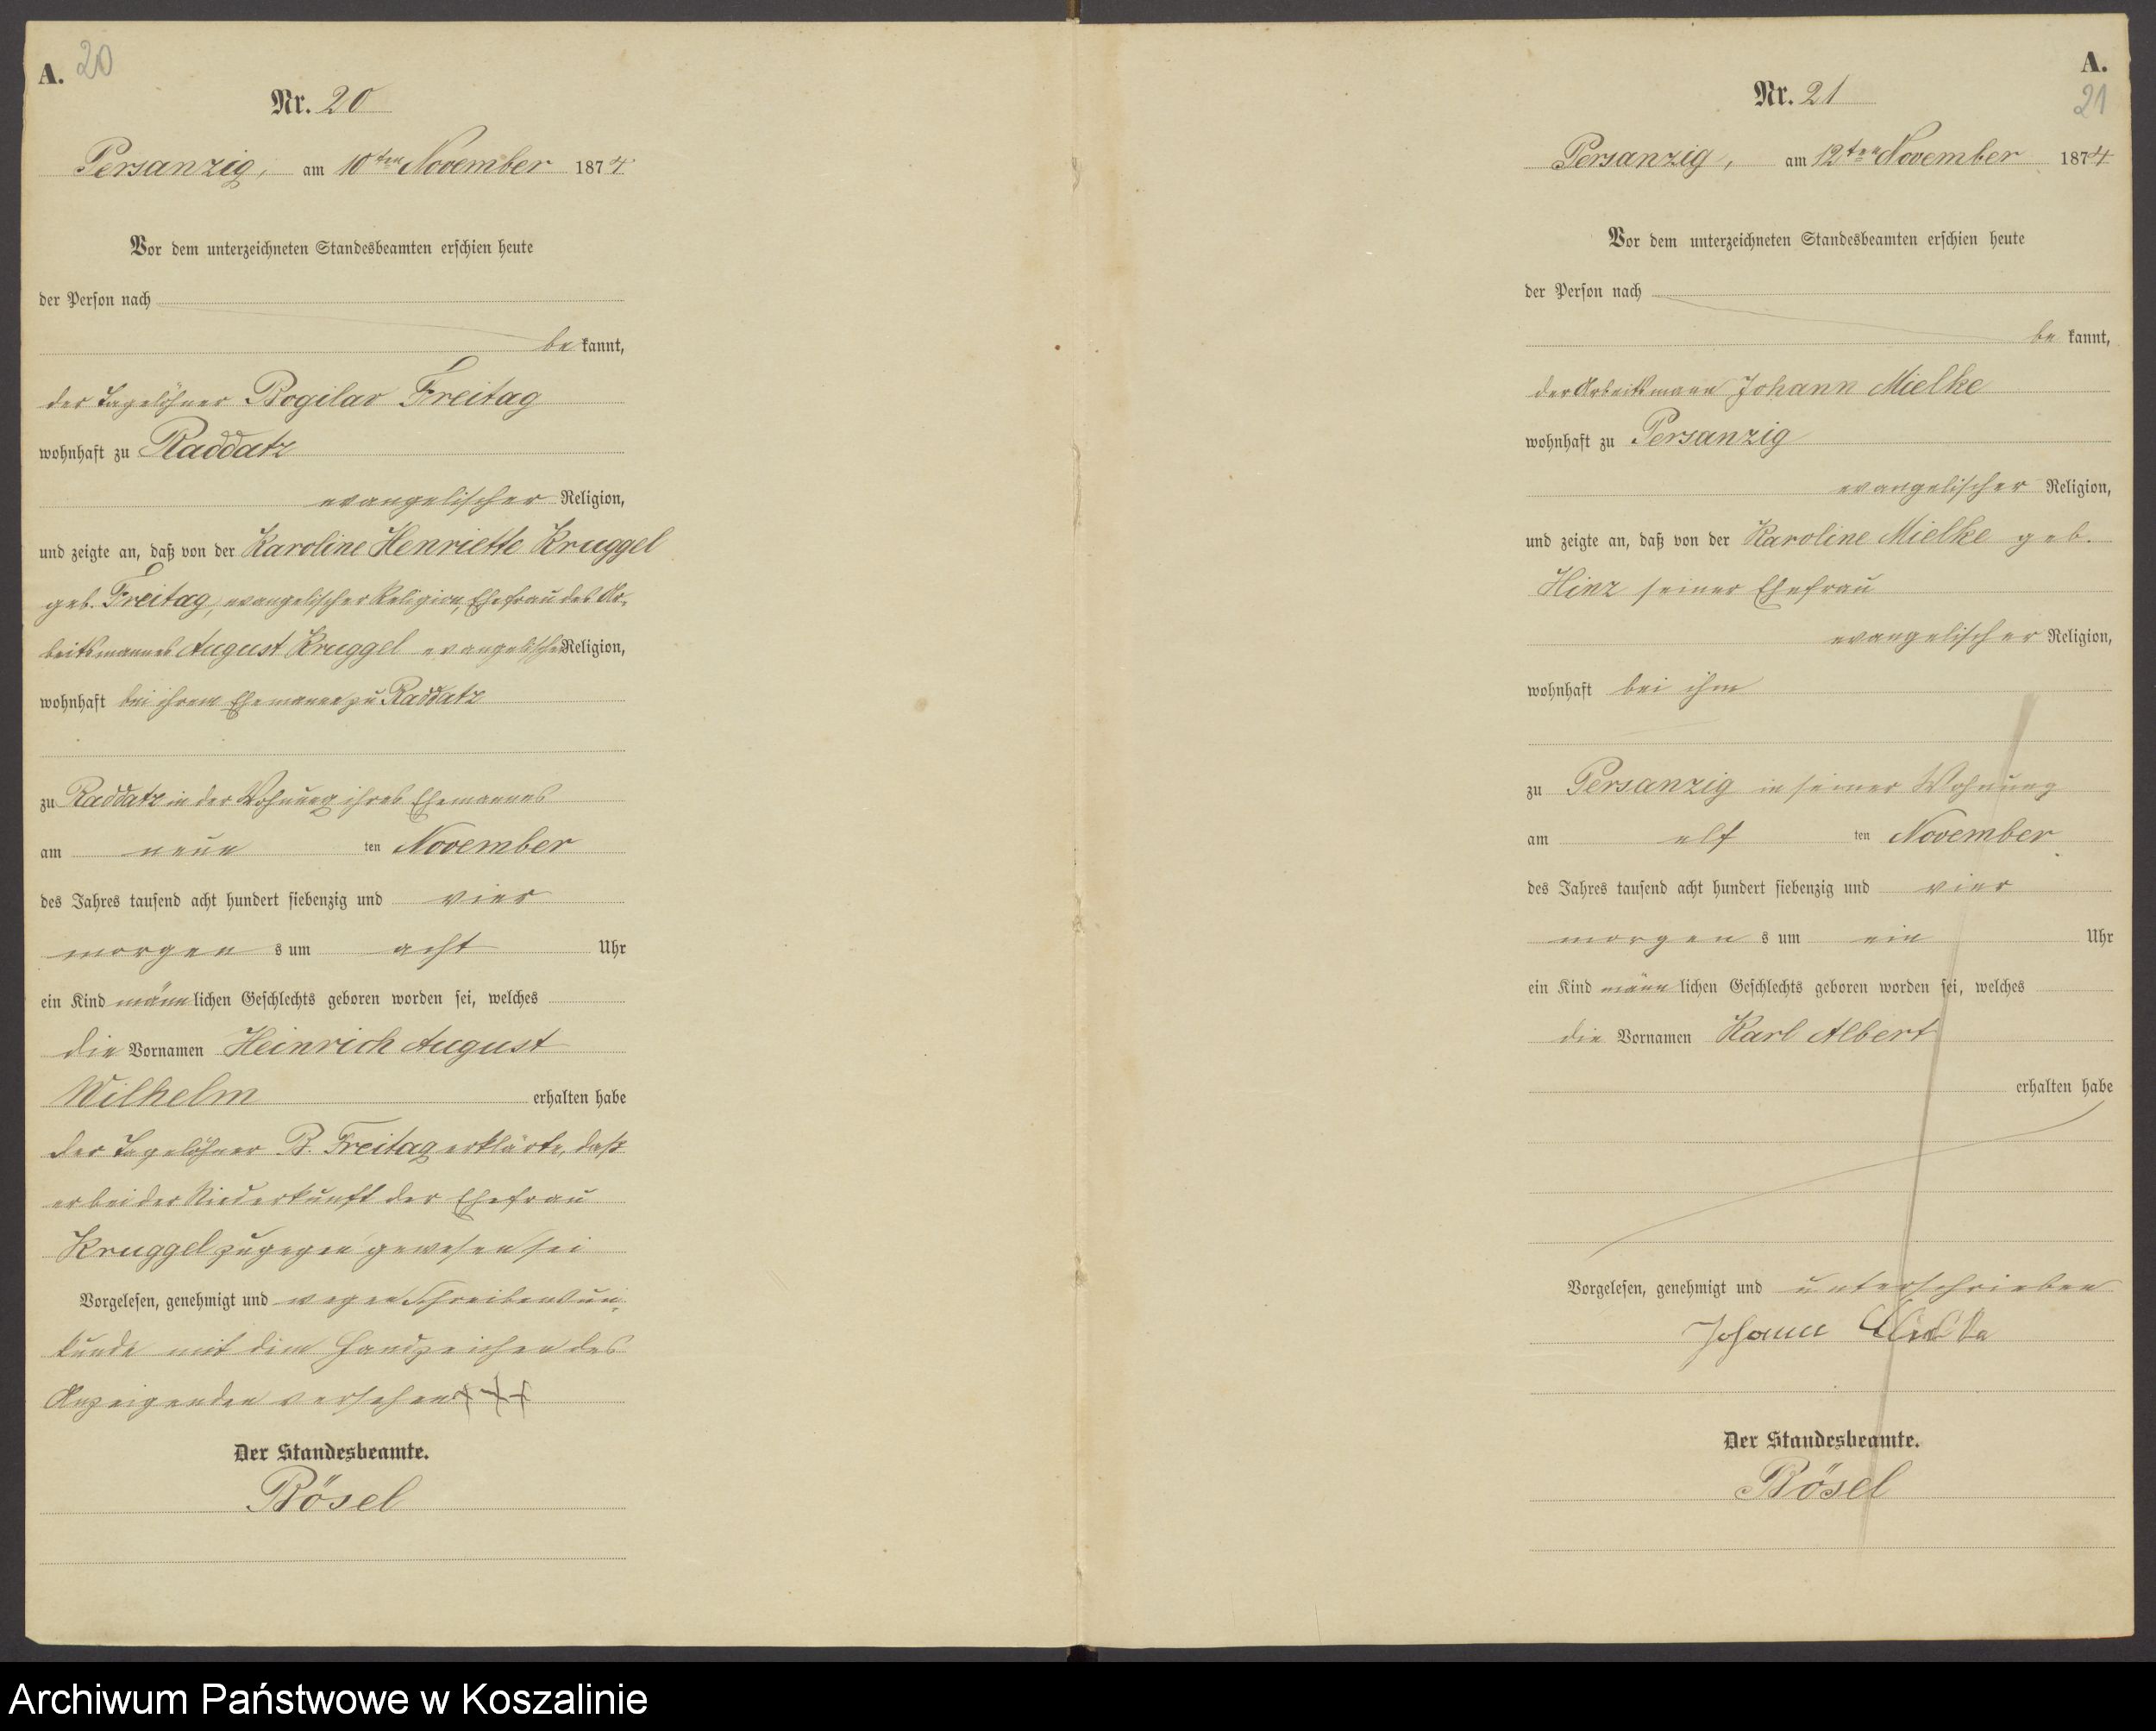 A. 20
Nr. 20
Persanzig, am 10ten November 1874
Vor dem unterzeichneten Standesbeamten erschien heute
der Person nach
be kannt,
der Tagelöhner Bogilav Freitag
wohnhaft zu Raddatz
evangelischer Religion,
und zeigte an, daß von der Karoline Henriette Kruggel
geb. Freitag, evangelischer Religion, Ehefrau des Ar-
beitsmannes August Kruggel evangelischer Religion,
wohnhaft bei ihrem Ehemanne zu Raddatz
zu Raddatz in der Wohnung ihres Ehemannes
am neun ten November
des Jahres tausend acht hundert siebenzig und vier
morgen s um acht Uhr
ein Kind männ lichen Geschlechts geboren worden sei, welches
die Vornamen Heinrich August
Wilhelm erhalten habe
der Tagelöhner B. Freitag erklärte, daß
er bei der Niederkunft der Ehefrau
Kruggel zugegen gewesen sei
Vorgelesen, genehmigt und wegen Schreibensun-
kunde mit dem Handzeichen des
Anzeigenden versehen +++
Der Standesbeamte.
Bösel
A.
21
Nr. 21
Persanzig, am 12ten November 1874
Vor dem unterzeichneten Standesbeamten erschien heute
der Person nach
be kannt,
der Arbeitsmann Johann Mielke
wohnhaft zu Persanzig
evangelischer Religion,
und zeigte an, daß von der Karoline Mielke geb.
Hinz seiner Ehefrau
evangelischer Religion,
wohnhaft bei ihm
zu Persanzig in seiner Wohnung
am elf ten November
des Jahres tausend acht hundert siebenzig und vier
morgen s um ein Uhr
ein Kind männ lichen Geschlechts geboren worden sei, welches
die Vornamen Karl Albert
erhalten habe
Vorgelesen, genehmigt und unterschrieben
Johann Mielke
Der Standesbeamte.
Bösel
Archiwum Państwowe w Koszalinie